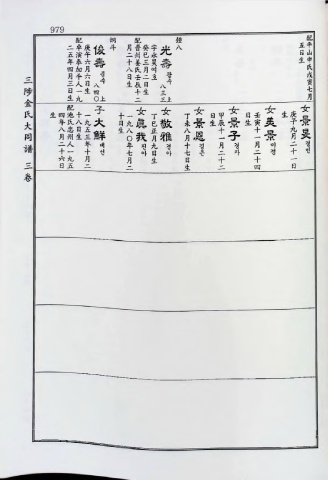 979
配平山申氏戊寅七月
五日生
女景旻 경민
庚子九月二十一日
生
女美景 미경
壬寅十一月二十四
日生
女景子 경자
甲辰十一月二十二
日生
女景恩 경은
丁未八月十七日生
鍾八
光壽 광수 八三三上
癸巳三月二日生
配晋州姜氏壬辰十二
月二十八日生
女敬雅 경아
丁巳正月九日生
女眞我 진아
一九八〇年七月二
十日生
炳斗
俊壽 준수 八四〇上
庚午六月六日生
二五年四月三日生
子大鮮 대선
一九五三年十月二
十八日生
配池氏忠州人一九五
四年八月二十六日
生
三陟金氏大同譜 三卷